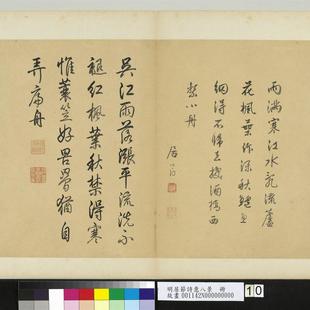 雨滿寒江水亂流蘆
花楓葉作深秋鱸魚
網得不歸去換酒橋西
繫小舟
居節
吳江雨落漲平流洗不
褪紅楓葉秋禁得寒
惟蓑笠好罟罾猶自
弄扁舟
明居節詩意八景 冊
故畫001142N000000000
10